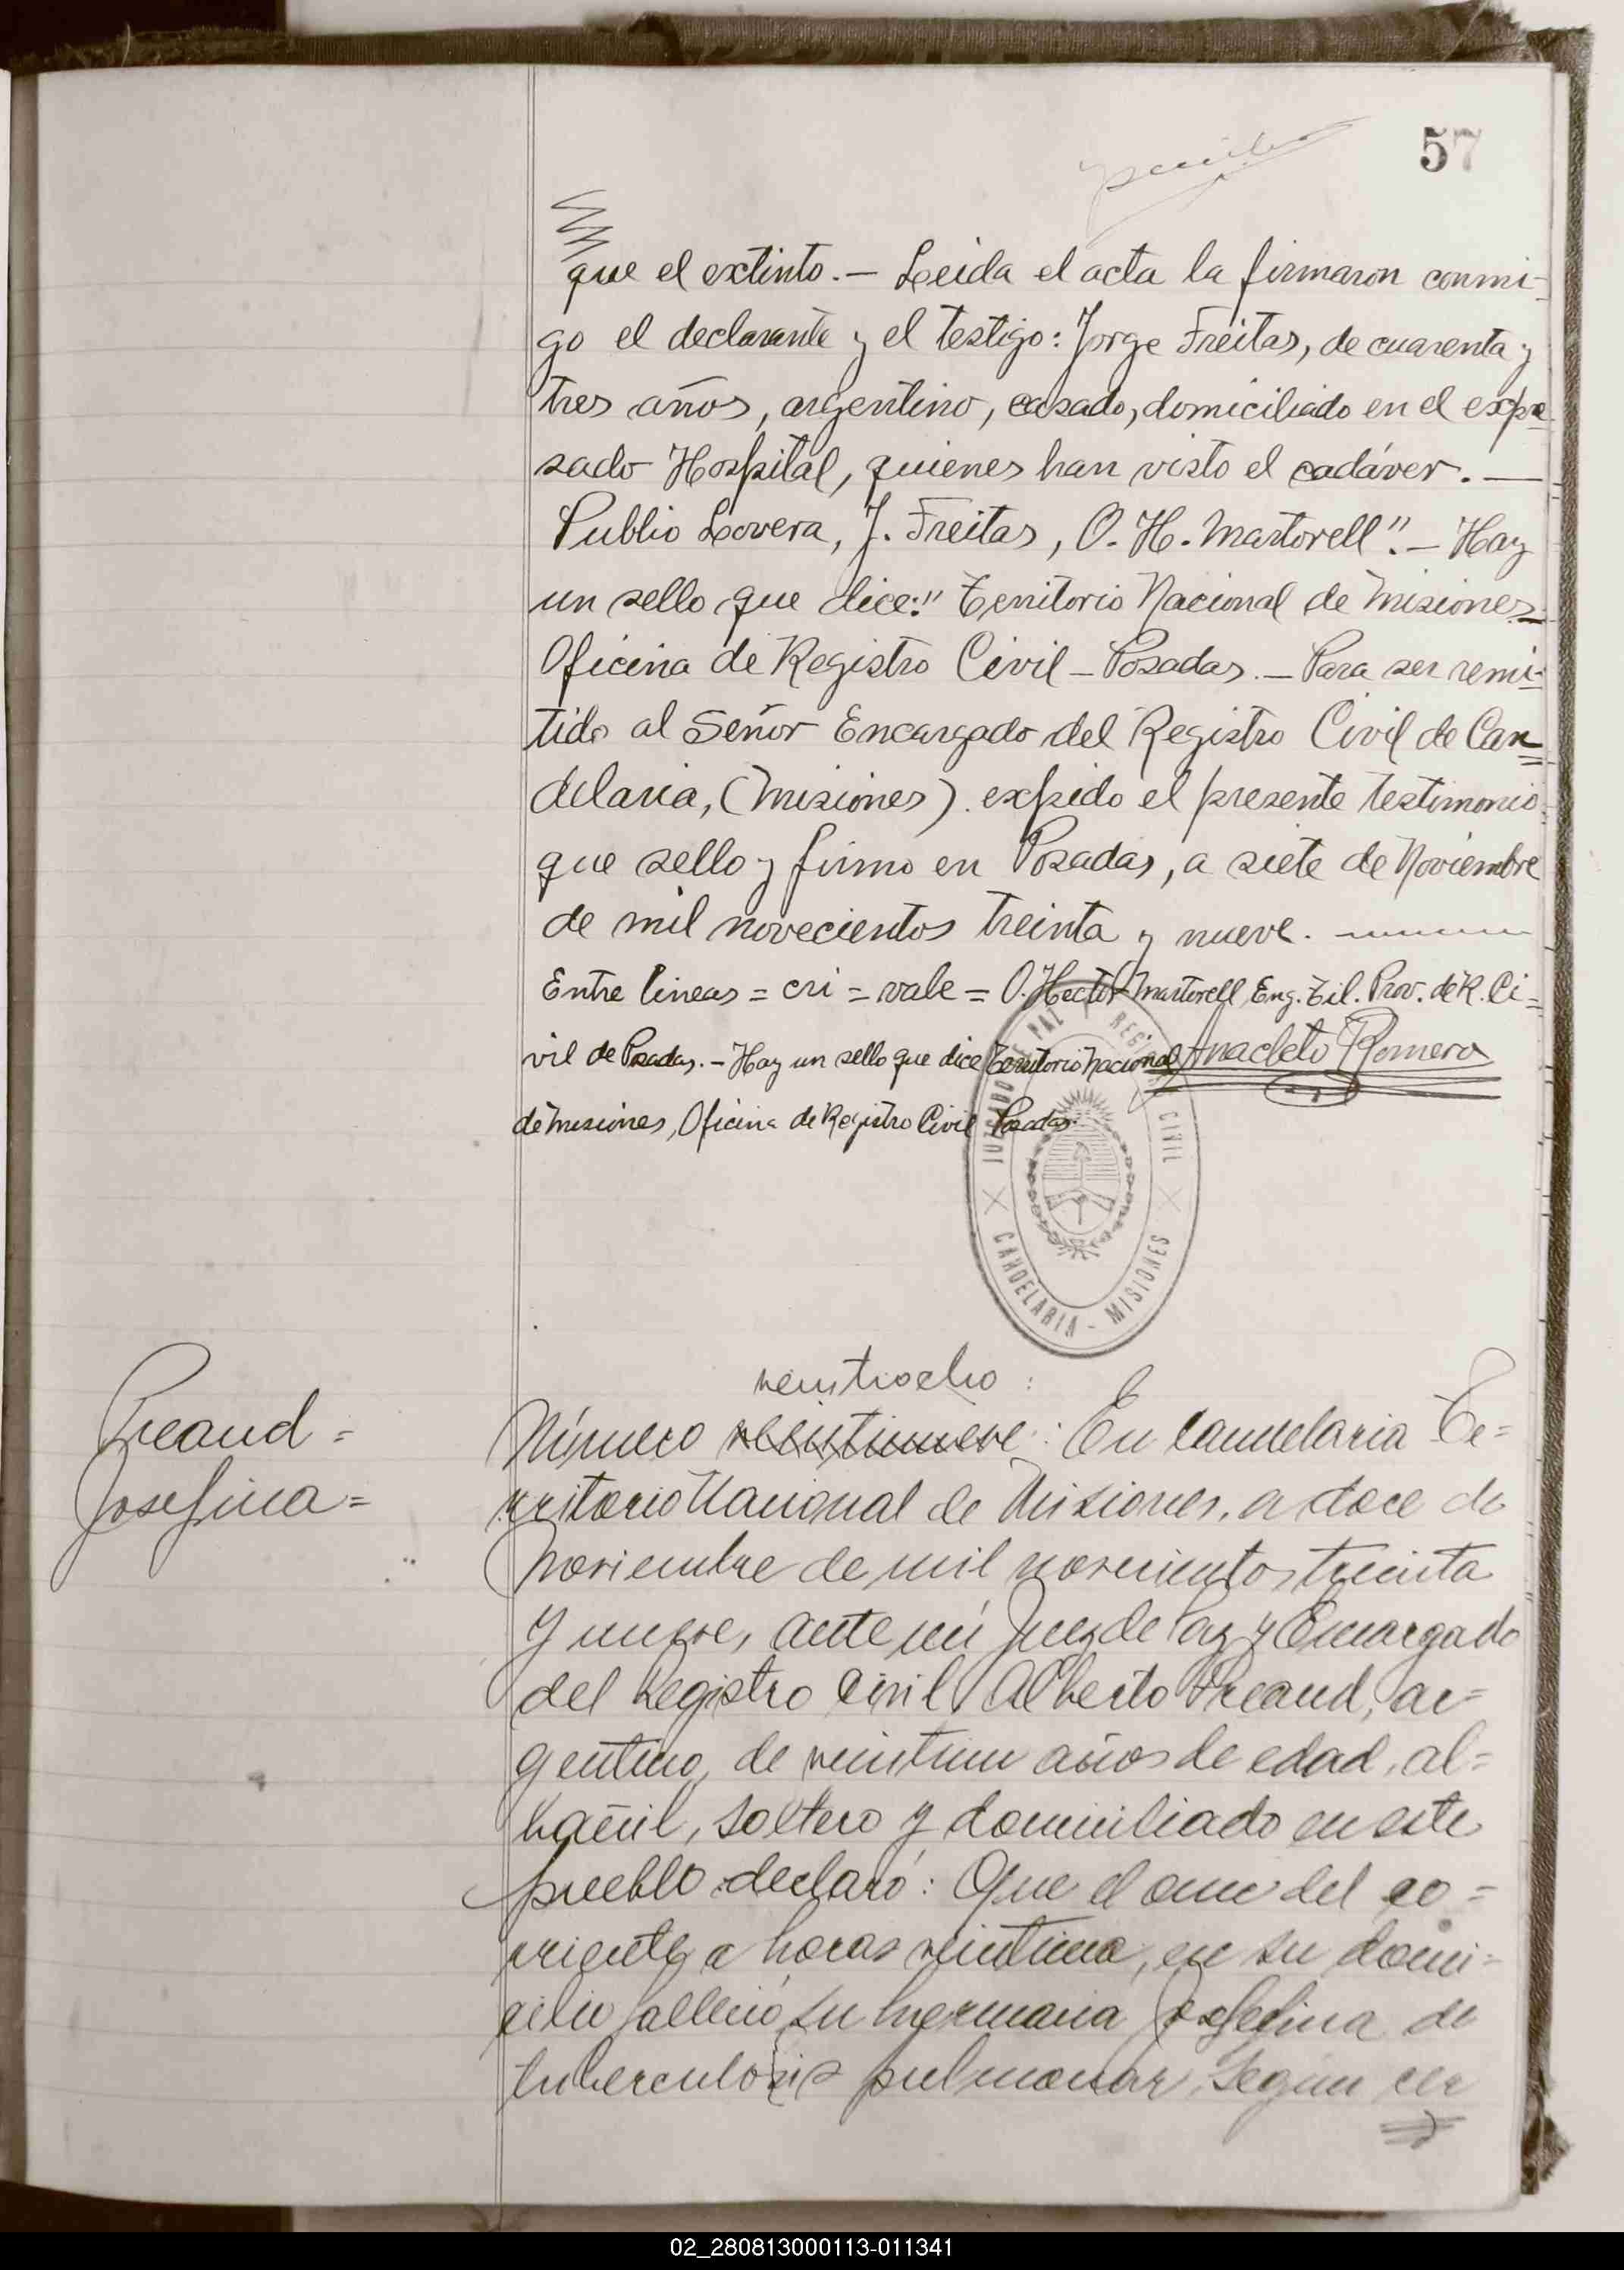 57
que el extinto. — Leida el acta la firmaron conmi-
go el declarante y el testigo: Jorge Freitas, de cuarenta y
tres años, argentino, casado, domiciliado en el expre-
sado Hospital, quienes han visto el cadáver. —
Publio Lovera, J. Freitas, O. H. Martorell". — Hay
un sello que dice: "Territorio Nacional de Misiones =
Oficina de Registro Civil — Posadas. — Para ser remi-
tido al Señor Encargado del Registro Civil de Can=
delaria, (Misiones). expido el presente testimonio
que sello y firmo en Posadas, a siete de Noviembre
de mil novecientos treinta y nueve.
Entre lineas = cri = vale = O. Hector Martorell, Eng. Tit. Prov. de R. Ci=
vil de Posadas. — Hay un sello que dice Territorio Nacional
Anacleto Romero
de Misiones, Oficina de Registro Civil Posadas.
JUZGADO DE PAZ Y REGISTRO CIVIL
CANDELARIA - MISIONES
Preaud =
Josefina =
veintiocho :
Número veintinueve : En Candelaria Te=
rritorio Nacional de Misiones, a doce de
Noviembre de mil novecientos treinta
y nueve, ante mi Juez de Paz y Encargado
del Registro Civil, Alberto Preaud, ar=
gentino, de veintiun años de edad, al=
bañil, soltero y domiciliado en este
pueblo declaró: Que el once del co=
rriente, a horas veintiuna, en su domi=
cilio falleció su hermana Josefina de
tuberculosis pulmonar, segun cer